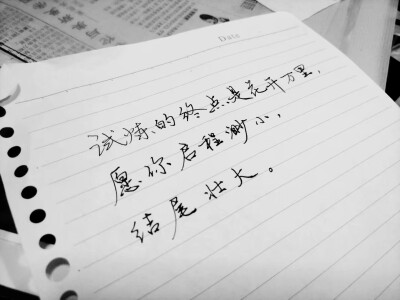 Date
试炼的终点是花开万里，
愿你启程渺小，
结尾壮大。